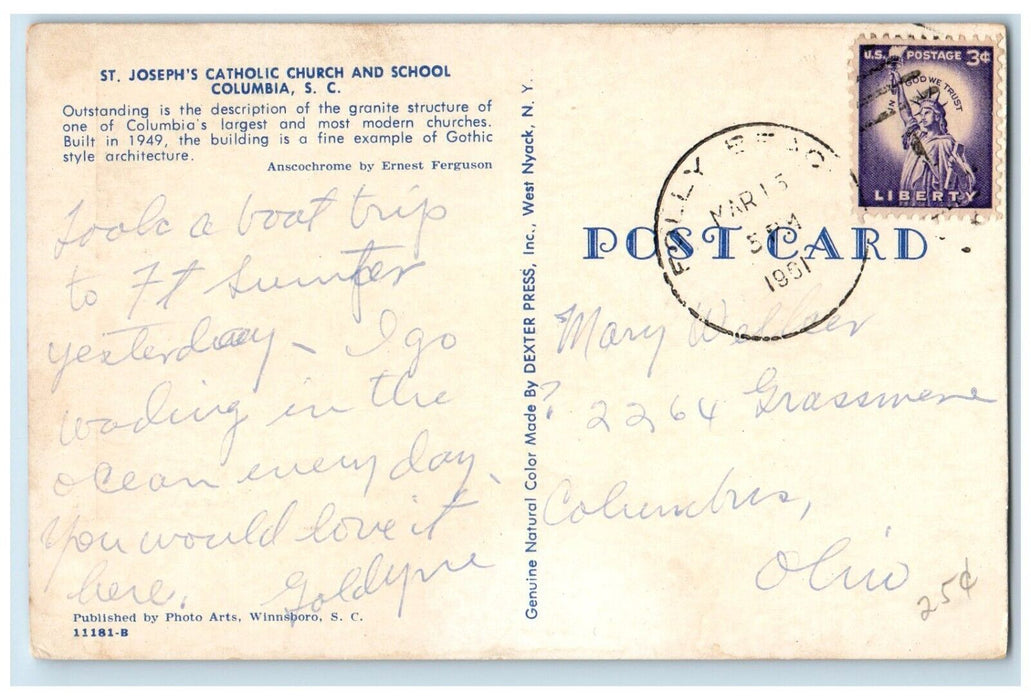 ST. JOSEPH'S CATHOLIC CHURCH AND SCHOOL
COLUMBIA, S. C.
Outstanding is the description of the granite structure of
one of Columbia's largest and most modern churches.
Built in 1949, the building is a fine example of Gothic
style architecture.
Anscochrome by Ernest Ferguson
Took a boat trip
to Ft Sumter
yesterday - I go
wading in the
ocean every day.
You would love it
here. Goldyne
Published by Photo Arts, Winnsboro, S. C.
11181-B
Genuine Natural Color Made By DEXTER PRESS, Inc., West Nyack, N. Y.
U.S. POSTAGE 3¢
IN GOD WE TRUST
LIBERTY
FOLLY BEACH
MAR 13
5 PM
1961
POST CARD
Mary
? 2264 Grassmere
Columbus,
Ohio
25¢